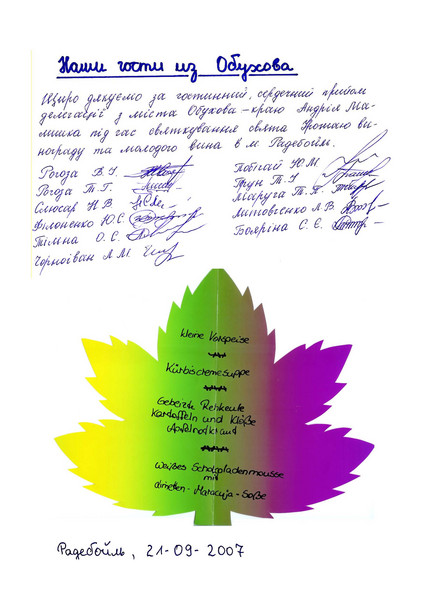 Наши гости из Обухова
Щиро дякуємо за гостинний, сердечний прийом
делегації з міста Обухова - краю Андрія Ма-
лишка під час святкування свята Урожаю ви-
нограду та молодого вина в м. Радебойль.
Рогоза В.І.
Рогоза Т.Г.
Слюсар Н.В.
Філоненко Ю.С.
Тетяна О.С.
Чорноіван Л.М.
Побігай Ю.М.
Трун Т.І.
Мазруга Т.П.
Литовченко Л.В.
Бояріна С.Є.
kleine Vorspeise
Kürbiscremesuppe
Gebeizte Rehkeule
Kartoffeln und Klöße
Apfelrotkraut
weißes Schokoladenmousse
mit
Limetten - Maracuja - Soße
Радебойль, 21-09-2007